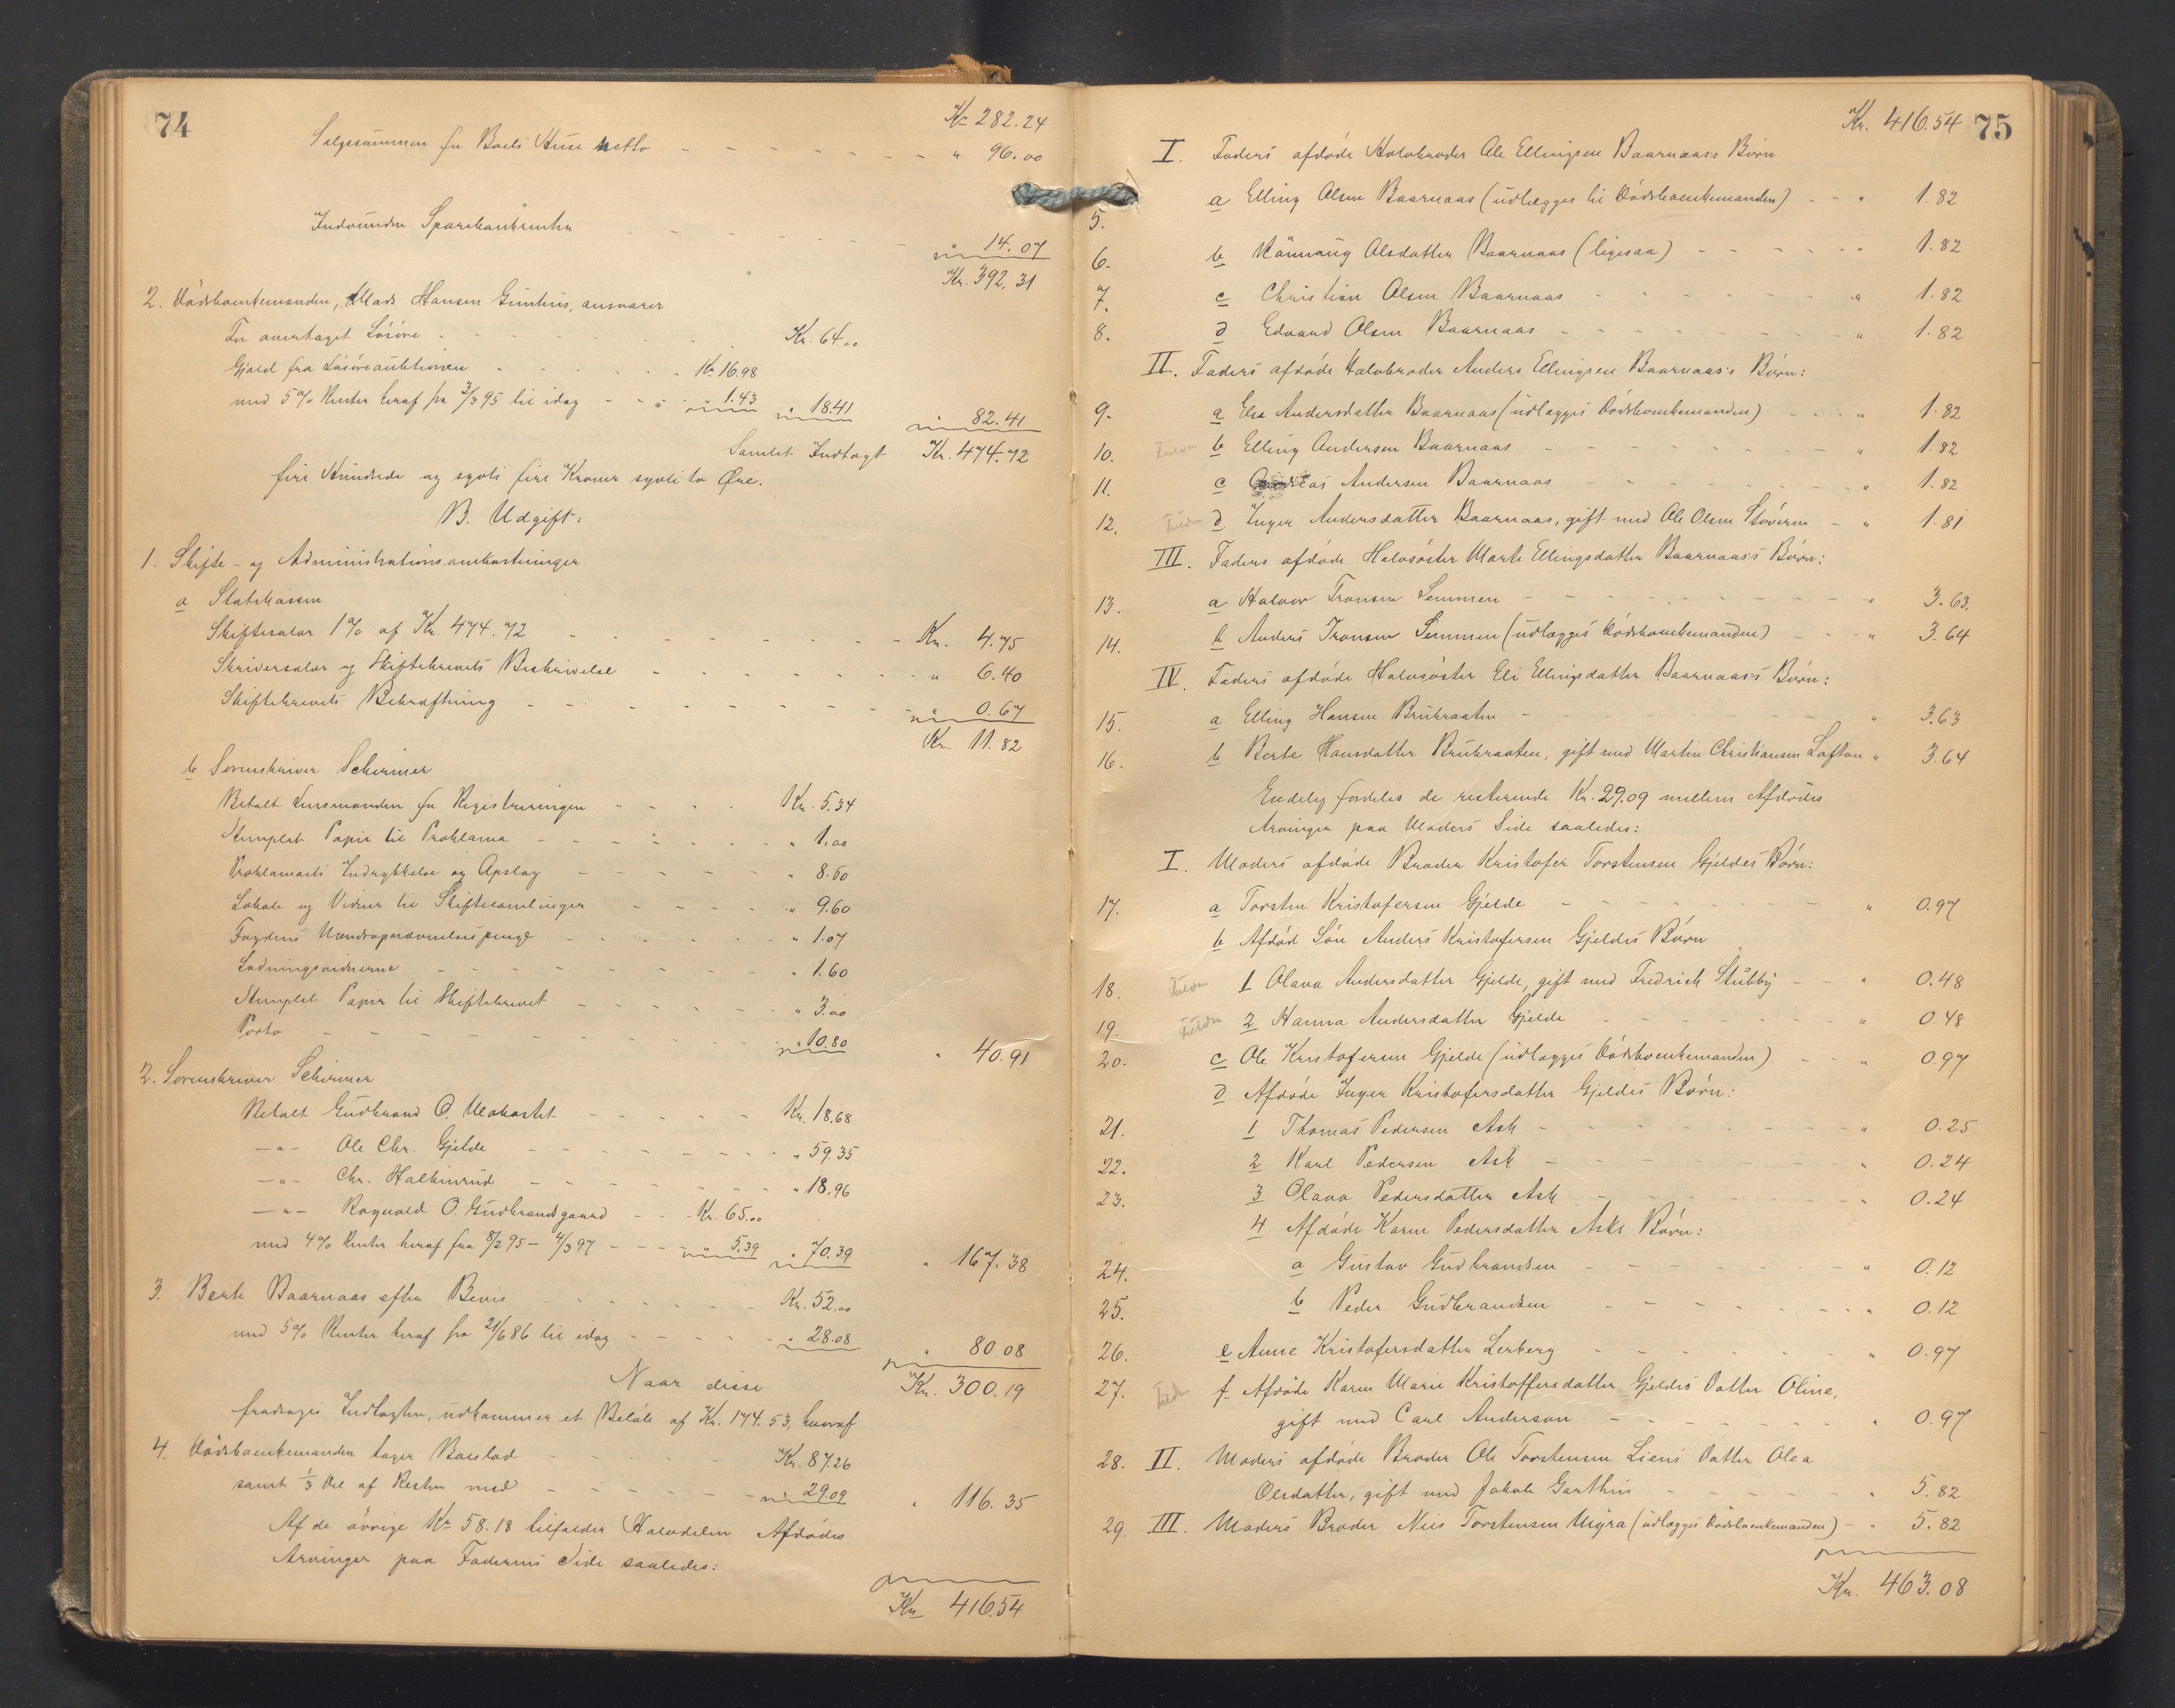 74
Kr 282.24
Salgssummen for Boets Huse netto " 96.00
Indvundne Sparebankrenter " 14.07
Kr. 392.31
2. Dödsboenkemanden, Mads Hansen Gunhus, ansvarer
For overtaget Lösöre Kr. 64.00
Gjæld fra Lösöreauktionen Kr 16.98
med 5% Renter heraf fra 3/3 95 til idag " 1.43 " 18.41 " 82.41
Samlet Indtægt Kr. 474.72
fire Hundrede og sytti fire Kroner sytti to Øre.
B. Udgift:
1. Skifte- og Administrationsomkostninger
a Statskassen
Skiftesalær 1% af Kr. 474.72 Kr. 4.75
Skriversalær og Skiftebrevets Beskrivelse " 6.40
Skiftebrevets Bekræftning " 0.67
Kr 11.82
b Sorenskriver Schirmer
Betalt Lensmanden for Registreringen Kr. 5.34
Stemplet Papir til Proklama " 1.00
Proklamaets Indrykkelse og Opslag " 8.50
Lokale og Vidner til Skiftesamlinger " 9.60
Fogdens " 1.07
Lodningsvidnerne " 1.60
Stemplet Papir til Skiftebrevet " 3.00
Porto " 10.80 " 40.91
2. Sorenskriver Schirmer
Betalt Gudbrand O. Kr. 18.68
—"— Ole Chr. Gjelde " 59.35
—"— Chr. Halkinrud " 18.96
—"— Ragnvald O. Gudbrandsgaard Kr. 65.00
med 4% Renter heraf fra 8/2 95 — 4/3 97 " 5.39 " 70.39 " 167.38
3. Berte Baarnaas efter Bevis Kr. 52.00
med 5% Renter heraf fra 21/6 86 til idag " 28.08 " 80.08
Naar disse Kr. 300.19
fradrages Indtægten, udkommer et Beløb af Kr. 174.53, hvoraf
4. Dödsboenkemanden tager Boeslod Kr. 87.26
samt 1/3 Del af Resten med " 29.09 " 116.35
Af de övrige Kr 58.18 tilfalder Halvdelen Afdödes
Arvinger paa Faderens Side saaledes:
Kr 416.54
75
Kr. 416.54
I. Faders afdöde Halvbroder Ole Ellingsen Baarnaas's Börn
5. a Elling Olsen Baarnaas (udlægges til Dödsboenkemanden) " 1.82
6. b Rönnaug Olsdatter Baarnaas (ligesaa) " 1.82
7. c Christian Olsen Baarnaas " 1.82
8. d Edvard Olsen Baarnaas " 1.82
II. Faders afdöde Halvbroder Anders Ellingsen Baarnaas's Börn:
9. a Else Andersdatter Baarnaas (udlægges Dödsboenkemanden) " 1.82
10. b Elling Andersen Baarnaas " 1.82
11. c Andreas Andersen Baarnaas " 1.82
12. d Inger Andersdatter Baarnaas, gift med Ole Olsen Stöveren " 1.81
III. Faders afdöde Halvsöster Marte Ellingsdatter Baarnaas's Börn:
13. a Halvor Tronsen Semmen " 3.63.
14. b Anders Tronsen Semmen (udlægges Dödsboenkemanden) " 3.64
IV. Faders afdöde Halvsöster Eli Ellingsdatter Baarnaas's Börn:
15. a Elling Hansen Brubraaten " 3.63
16. b Berte Hansdatter Brubraaten, gift med Martin Christiansen Loften " 3.64
Endelig fordeles de resterende Kr. 29.09 mellem Afdödes
Arvinger paa Moders Side saaledes:
I. Moders afdöde Broder Kristofer Torstensen Gjeldes Börn:
17. a Torsten Kristofersen Gjelde " 0.97
b Afdød Sön Anders Kristofersen Gjeldes Börn
18. 1 Olava Andersdatter Gjelde, gift med Fredrich Stubby " 0.48
19. 2 Hanna Andersdatter Gjelde " 0.48
20. c Ole Kristofersen Gjelde (udlægges Dödsboenkemanden) " 0.97
d Afdöde Inger Kristofersdatter Gjeldes Börn:
21. 1 Thomas Pedersen Ask " 0.25
22. 2 Karl Pedersen Ask " 0.24
23. 3 Olava Pedersdatter Ask " 0.24
4 Afdöde Karen Pedersdatter Asks Börn:
24. a Gustav Gudbrandsen " 0.12
25. b Peder Gudbrandsen " 0.12
26. e Anne Kristofersdatter Lerberg " 0.97
27. f Afdöde Karen Marie Kristoffersdatter Gjeldes Datter Oline,
gift med Carl Anderson " 0.97
28. II. Moders afdöde Broder Ole Torstensen Liens Datter Olea
Olsdatter, gift med Jakob Garthus " 5.82
29. III. Moders Broder Nils Torstensen Myra (udlægges Dödsboenkemanden) " 5.82
Kr. 463.08